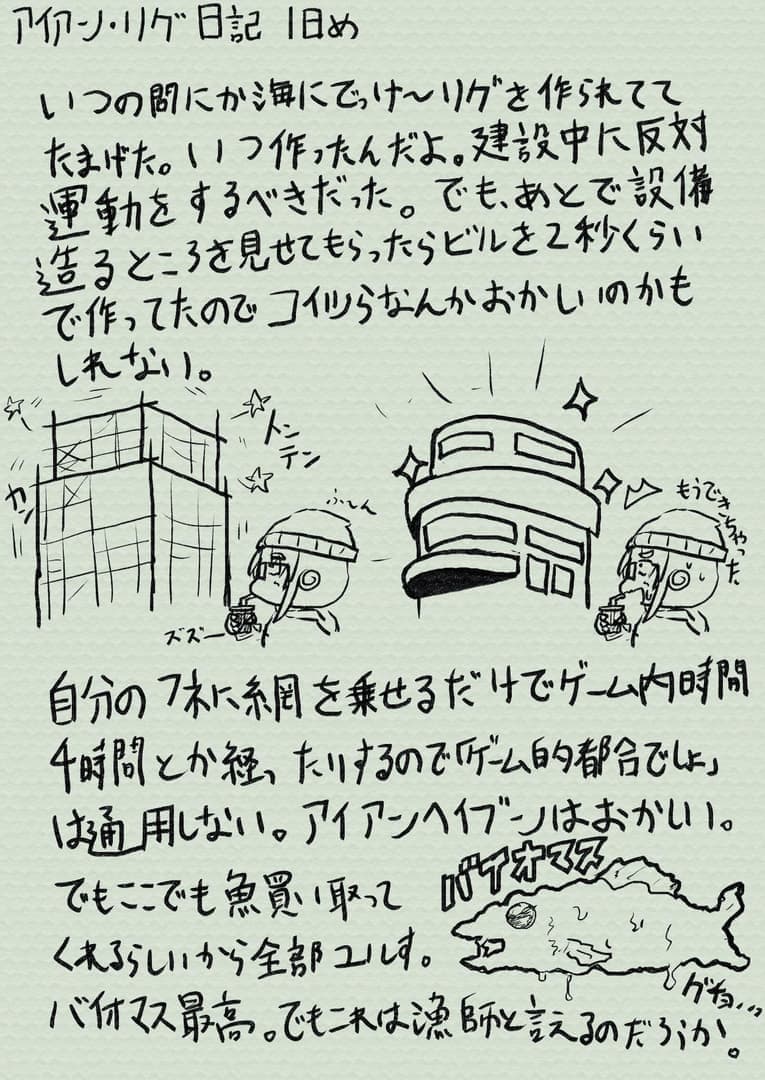 アイアン・リグ日記 1日め
いつの間にか海にでっけ〜リグを作られてて
たまげた。いつ作ったんだよ。建設中に反対
運動をするべきだった。でも、あとで設備
造るところを見せてもらったらビルを2秒くらい
で作ってたのでコイツらなんかおかしいのかも
しれない。
トン
テン
カン
ふーん
ズズー
もうできちゃった
自分のフネに網を乗せるだけでゲーム内時間
4時間とか経ったりするので「ゲーム的都合でしょ」
は通用しない。アイアンヘイブンはおかしい。
バイオマス
でもここでも魚買い取って
くれるらしいから全部ユルす。
グチョ…
バイオマス最高。でもこれは漁師と言えるのだろうか。